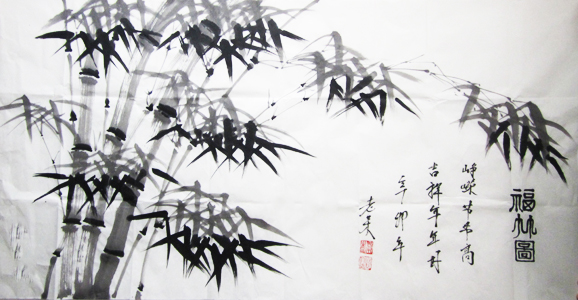 福竹圖
峥嵘节节高
吉祥年年好
辛卯年